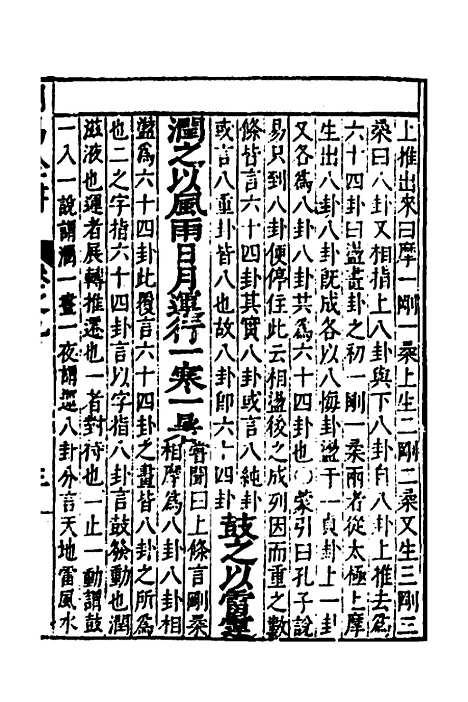 上推出來曰摩一剛一柔上生二剛二柔又生三剛三
柔曰八卦又相指上八卦與下八卦自八卦上推去為
六十四卦曰盪盡卦之初一剛一柔兩者從太極上摩
生出八卦八卦既成各以八悔卦盪于一貞卦上一卦
又各為八卦八卦共為六十四卦也○蒙引曰孔子說
易只到八卦便停住此云相盪後之成列因而重之數
條皆言六十四卦其實八卦或言八純卦
或言八重卦皆八也故八卦即六十四卦
鼓之以雷霆
潤之以風雨日月運行一寒一暑
嘗聞曰上條言剛柔
相摩為八卦八卦相
盪為六十四卦此覆言六十四卦之畫皆八卦之所為
也二之字指六十四卦言以字指八卦言鼓發動也潤
滋液也運者展轉推遷也一者對待也一止一動謂鼓
一入一說謂潤一晝一夜謂運八卦分言天地雷風水